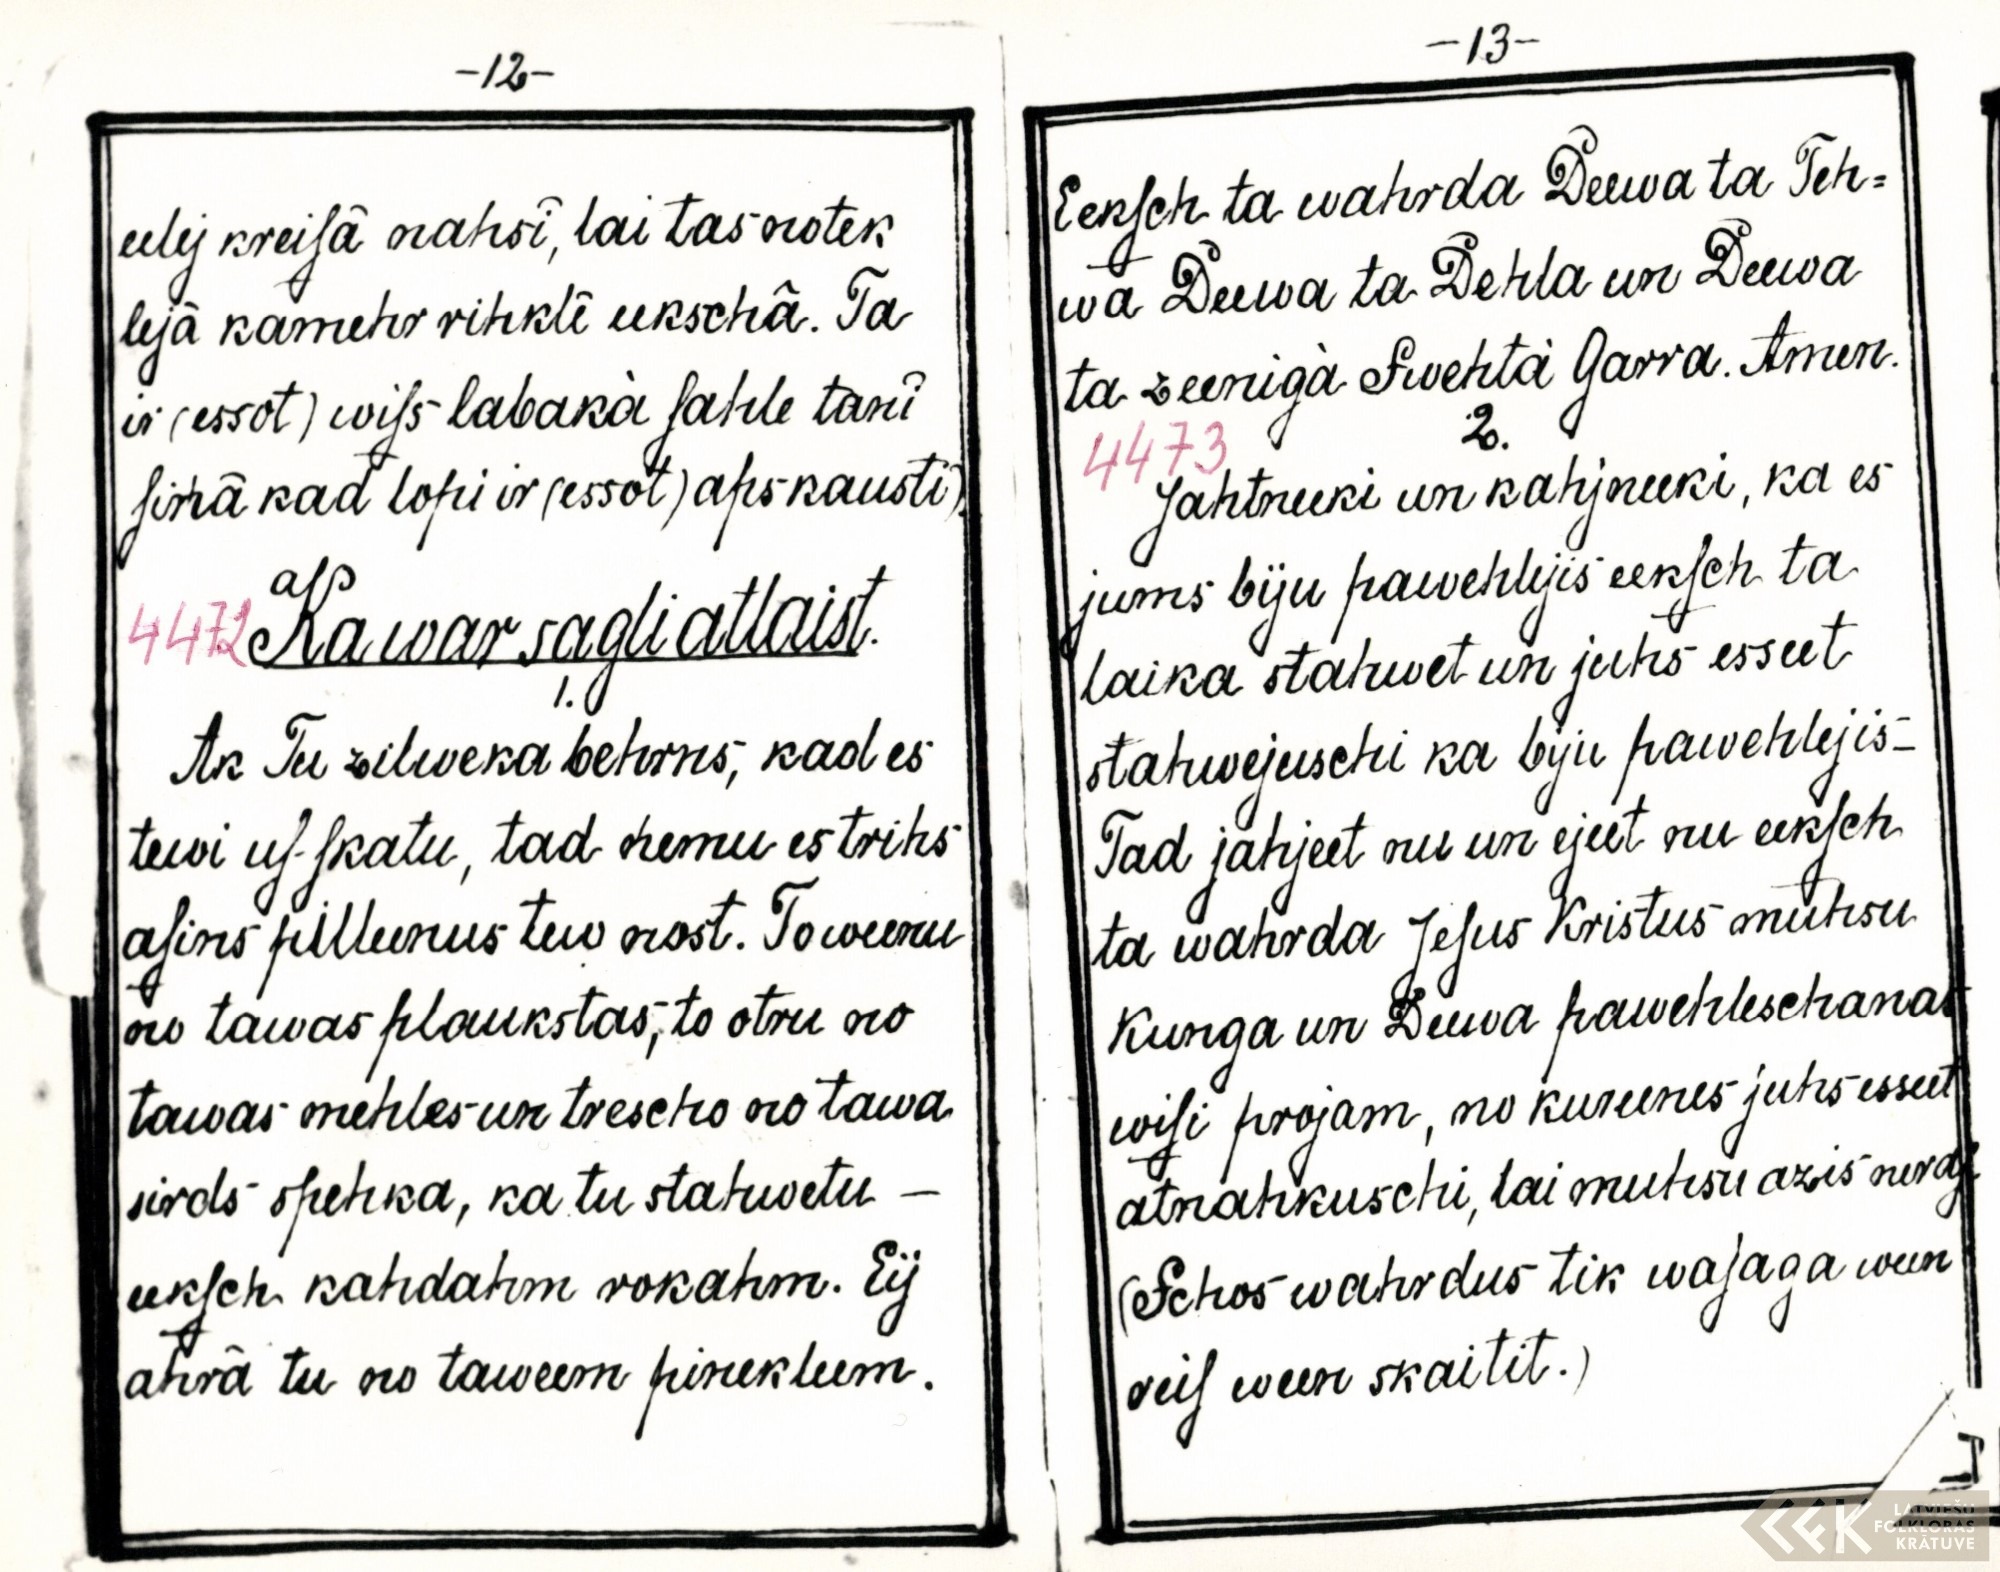 -12-
eelej kreiſâ nahsî, lai tas notek
lejâ kamehr rihklê eekschâ. Ta
ir (essot) wiſs labakà ſahle tanî
ſinâ kad lopi ir (essot) apskausti).
4472 Ka war sagli atlaist.
1.
Ak Tu zilweka behrns, kad es
tewi uſ-ſkatu, tad nemu es trihs
aſins pilleenus tew nost. To weenu
no tawas plaukstas, to otru no
tawas mehles un trescho no tawa
sirds spehka, ka tu stahwetu —
eekſch kahdahm rokahm. Eij
ahrâ tu no taweem pinekleem.
-13-
Eekſch ta wahrda Deewa ta Teh=
wa Deewa ta Dehla un Deewa
ta zeenigà Swehtà Garra. Amen.
4473 2.
Jahtneeki un kahjneeki, ka es
jums biju pawehlejis eekſch ta
laika stahwet un juhs esseet
stahwejuschi ka biju pawehlejis-
Tad jahjeet nu un ejeet nu eekſch
ta wahrda Jeſus Kristus muhsu
Kunga un Deewa pawehleschanas
wiſi projam, no kureenes juhs esseet
atnahkuschi, lai muhsu azis
(Schos wahrdus tik waſaga ween
reiſ ween skaitit.)
LATVIEŠU
FOLKLORAS
KRĀTUVE